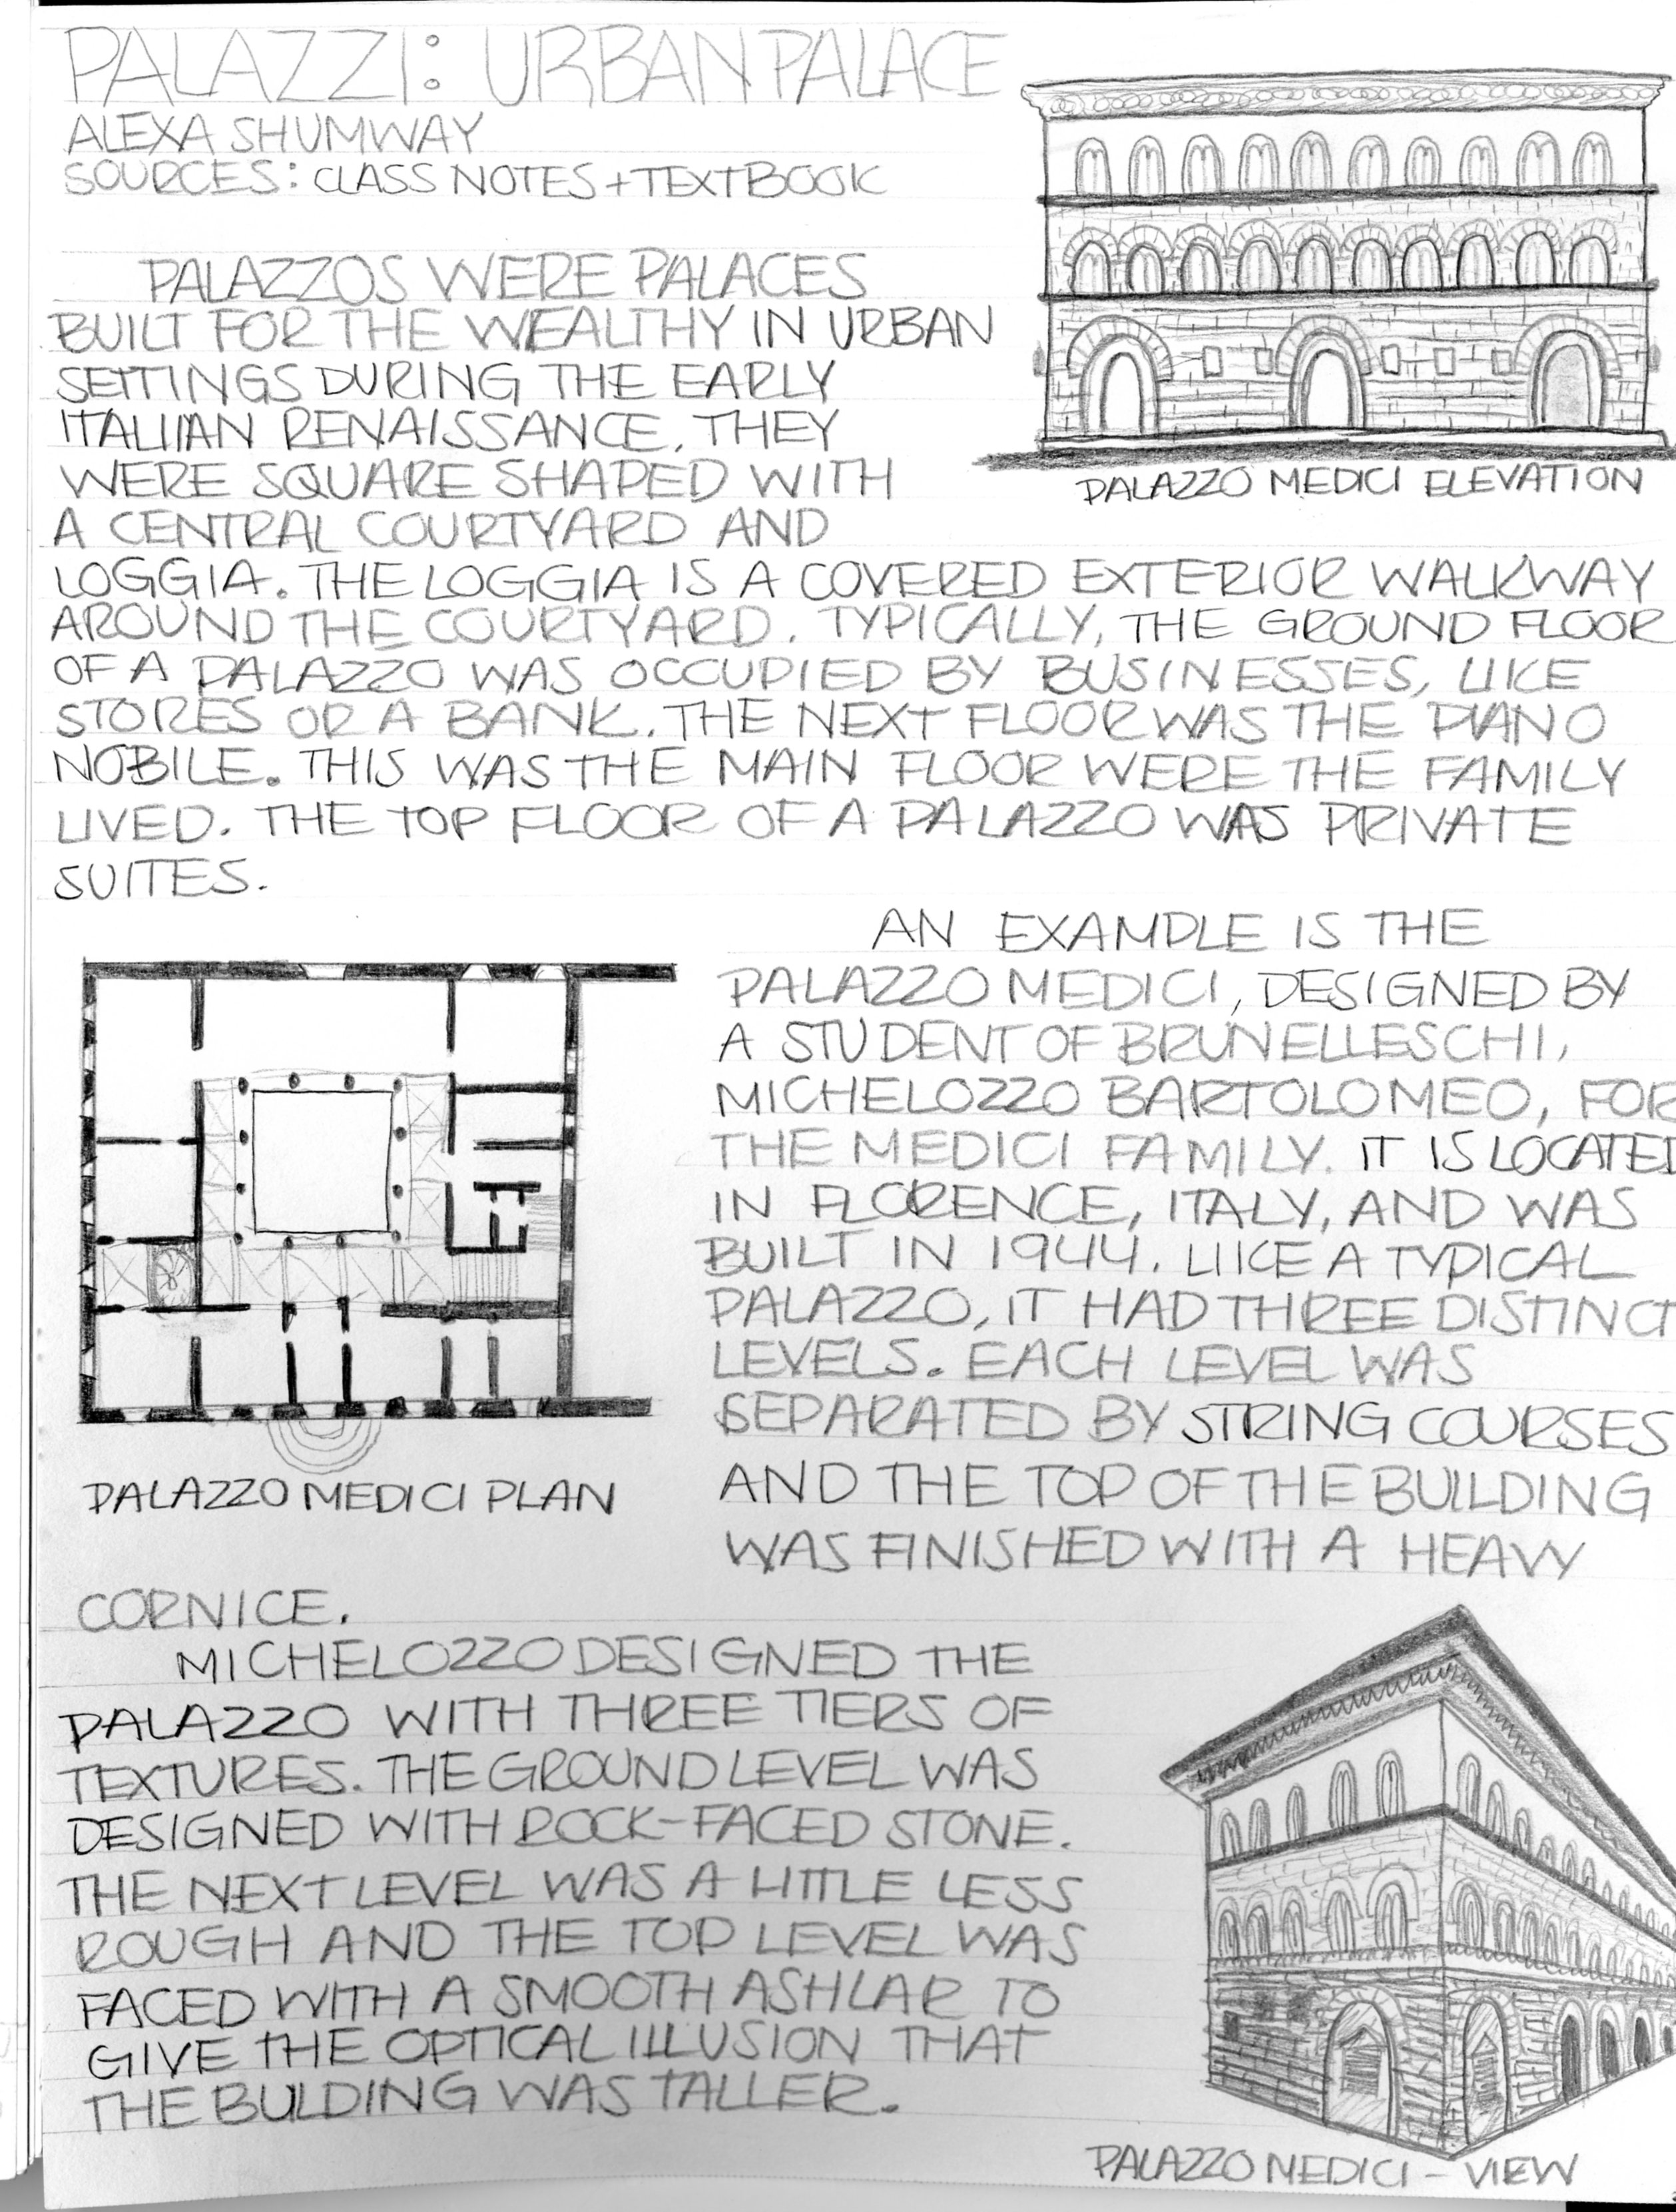 PALAZZI: URBAN PALACE
ALEXA SHUMWAY
SOURCES: CLASS NOTES + TEXTBOOK
PALAZZOS WERE PALACES
BUILT FOR THE WEALTHY IN URBAN
SETTINGS DURING THE EARLY
ITALIIAN RENAISSANCE. THEY
WERE SQUARE SHAPED WITH
A CENTRAL COURTYARD AND
LOGGIA. THE LOGGIA IS A COVERED EXTERIOR WALKWAY
AROUND THE COURTYARD. TYPICALLY, THE GROUND FLOOR
OF A PALAZZO WAS OCCUPIED BY BUSINESSES, LIKE
STORES OR A BANK. THE NEXT FLOOR WAS THE PIANO
NOBILE. THIS WAS THE MAIN FLOOR WERE THE FAMILY
LIVED. THE TOP FLOOR OF A PALAZZO WAS PRIVATE
SUITES.
PALAZZO MEDICI ELEVATION
AN EXAMPLE IS THE
PALAZZO MEDICI, DESIGNED BY
A STUDENT OF BRUNELLESCHI,
MICHELOZZO BARTOLOMEO, FOR
THE MEDICI FAMILY. IT IS LOCATED
IN FLORENCE, ITALY, AND WAS
BUILT IN 1944. LIKE A TYPICAL
PALAZZO, IT HAD THREE DISTINCT
LEVELS. EACH LEVEL WAS
SEPARATED BY STRING COURSES
AND THE TOP OF THE BUILDING
WAS FINISHED WITH A HEAVY
CORNICE.
PALAZZO MEDICI PLAN
MICHELOZZO DESIGNED THE
PALAZZO WITH THREE TIERS OF
TEXTURES. THE GROUND LEVEL WAS
DESIGNED WITH ROCK-FACED STONE.
THE NEXT LEVEL WAS A LITTLE LESS
ROUGH AND THE TOP LEVEL WAS
FACED WITH A SMOOTH ASHLAR TO
GIVE THE OPTICAL ILLUSION THAT
THE BULDING WAS TALLER.
PALAZZO MEDICI - VIEW